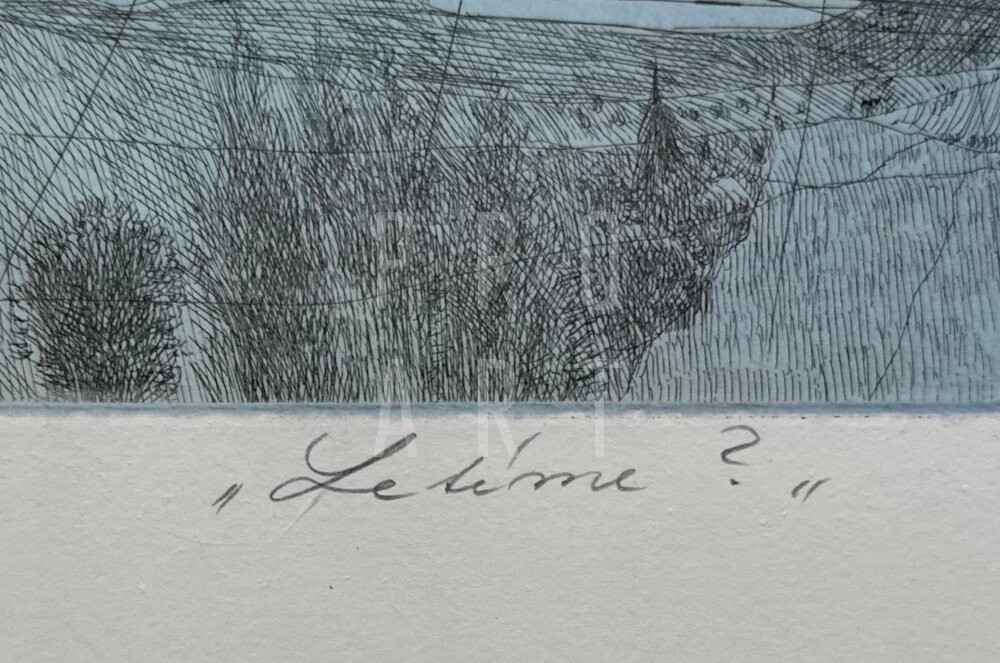 PRO
ART
„Letíme ?„